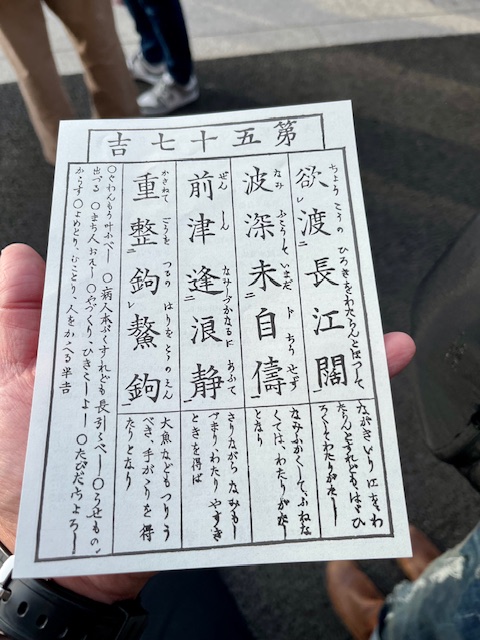 第五十七吉
ちようこうの ひろきをわたらんとほつして
欲レ渡二長江闊一
ながきひろき江をわ
たらんとすれども、はばひ
ろくてわたりがたし
なみ ふこうして いまだ
波深未二自儔一
なみふかくして、ふねな
くては、わたりがたし
となり
ぜん しん なみしづかなるに あふて
前津逢二浪静一
さりながらなみもし
づまり、わたりやすき
ときを得ば
かさねて
重整二鉤レ鰲鉤一
大魚などもつりう
べき、手がらを得
たりとなり
〇ぐわんもう叶ふべし 〇病人本ぷくすれども長引くべし 〇うせもの、
出づる 〇まち人おそし 〇やづくり、ひきこしよし 〇たびだちよろし
からず 〇よめとり、むことり、人をかゝへる半吉